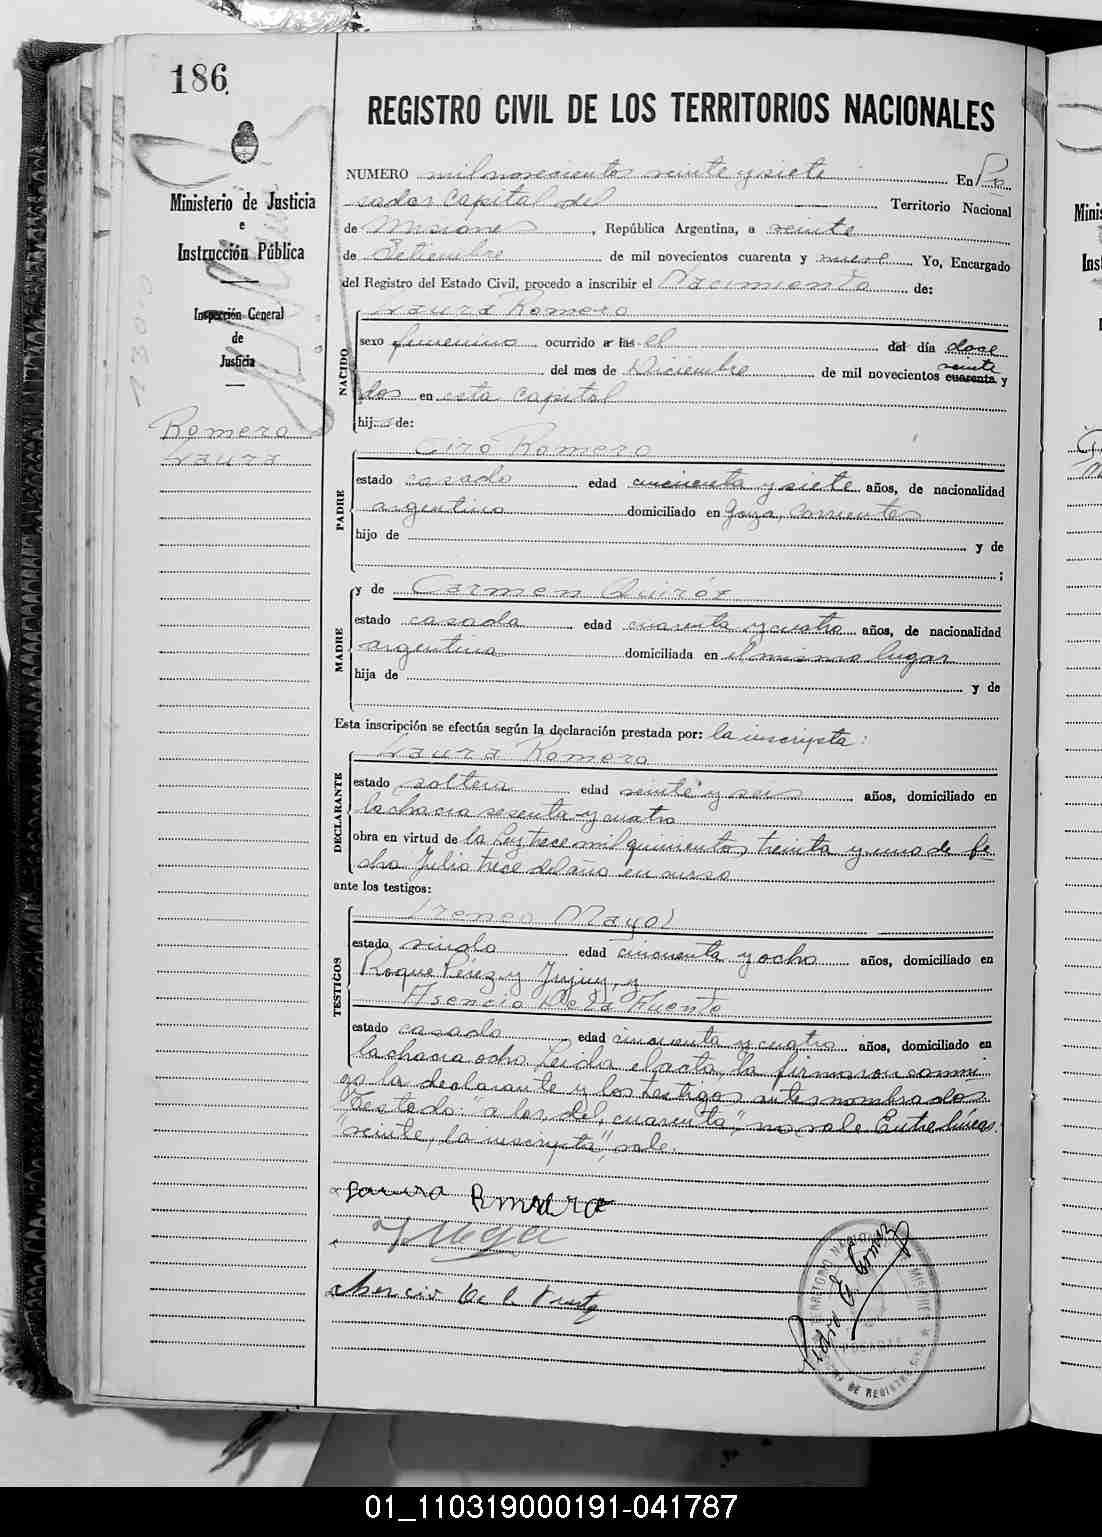 186.
REGISTRO CIVIL DE LOS TERRITORIOS NACIONALES
Ministerio de Justicia
e
Instrucción Pública
Inspección General
de
Justicia
Romero
Laura
NUMERO mil novecientos veinte y siete En Po
sadas Capital del Territorio Nacional
de Misiones, República Argentina, a veinte
de Setiembre de mil novecientos cuarenta y nueve Yo, Encargado
del Registro del Estado Civil, procedo a inscribir el Nacimiento de:
NACIDO
Laura Romero
sexo femenino ocurrido a las el del día doce
veinte
del mes de Diciembre de mil novecientos cuarenta y
dos en esta capital
hij de:
PADRE
Ciro Romero
estado casado edad cincuenta y siete años, de nacionalidad
argentino domiciliado en Goya, Corrientes
hijo de y de
;
MADRE
y de Carmen Quiróz
estado casada edad cuarenta y cuatro años, de nacionalidad
argentina domiciliada en el mismo lugar
hija de y de
Esta inscripción se efectúa según la declaración prestada por: la inscripta:
DECLARANTE
Laura Romero
estado soltera edad veinte y seis años, domiciliado en
la chacra sesenta y cuatro
obra en virtud de la Ley trece mil quinientos treinta y uno de fe-
cha Julio trece del año en curso
ante los testigos:
TESTIGOS
Ireneo Mayol
estado viudo edad cincuenta y ocho años, domiciliado en
Roque Pérez y Jujuy, y
Asencio De la Fuente
estado casado edad cincuenta y cuatro años, domiciliado en
la chacra ocho. Leida el acta, la firmaron conmi
go la declarante y los testigos antes nombrados
Testado: "a las, del, cuarenta", no vale. Entre líneas:
"veinte, la inscripta", vale.
Laura Romero
Asencio De la Fuente
TERRITORIO NACIONAL DE MISIONES
POSADAS
01_110319000191-041787